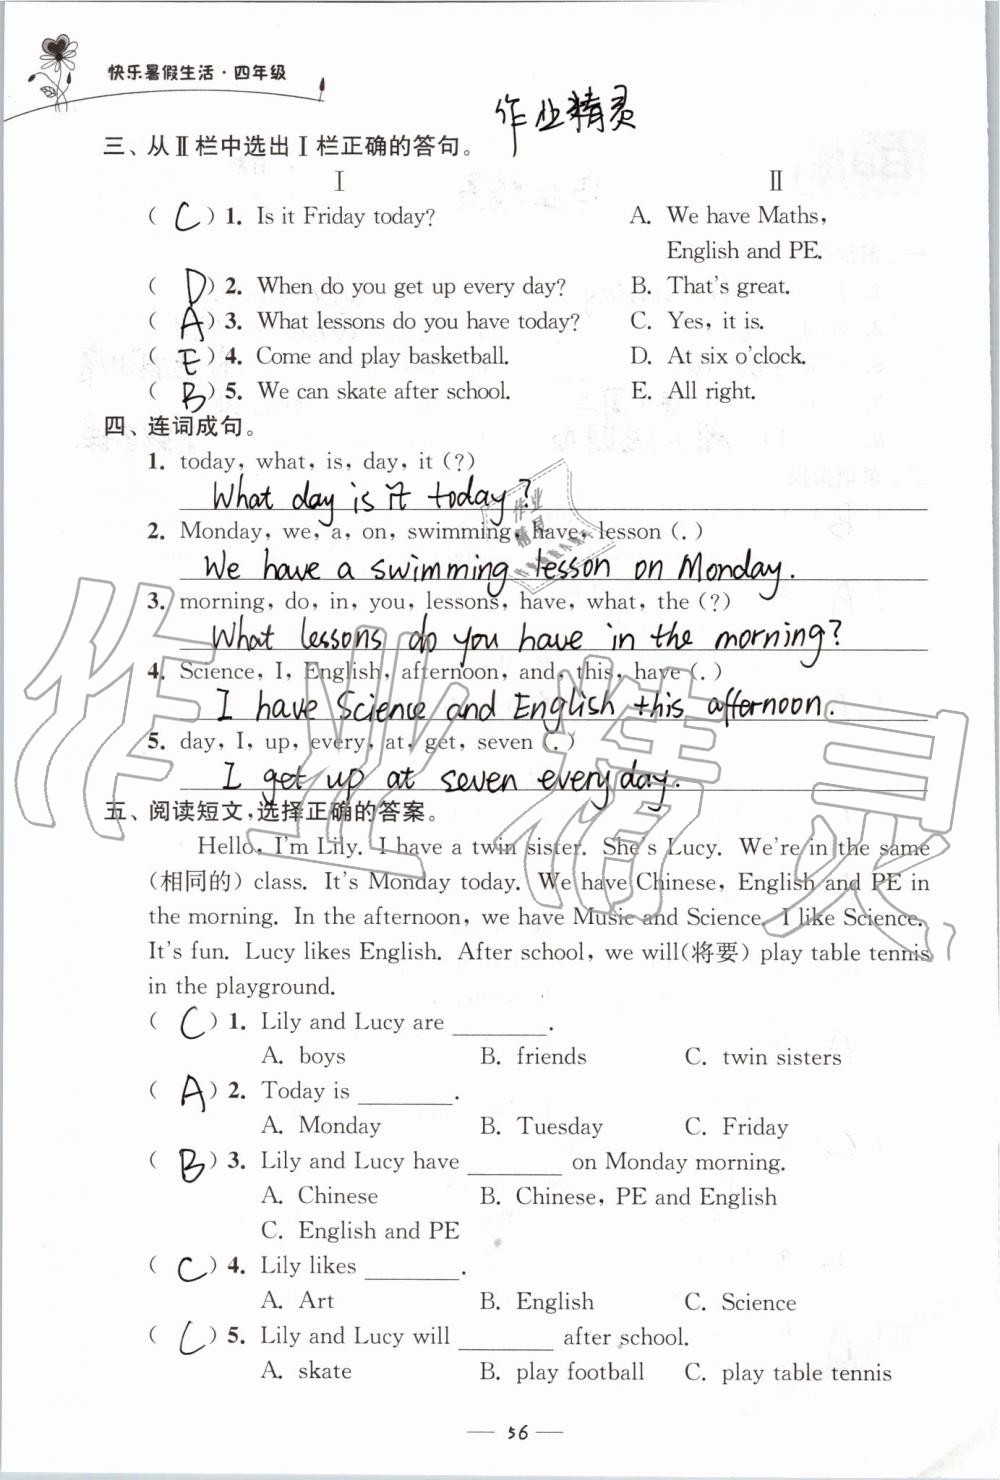 快乐暑假生活·四年级
作业精灵
三、从Ⅱ栏中选出Ⅰ栏正确的答句。
Ⅰ Ⅱ
( C ) 1. Is it Friday today? A. We have Maths,
English and PE.
( D ) 2. When do you get up every day? B. That's great.
( A ) 3. What lessons do you have today? C. Yes, it is.
( E ) 4. Come and play basketball. D. At six o'clock.
( B ) 5. We can skate after school. E. All right.
四、连词成句。
1. today, what, is, day, it (?)
What day is it today?
2. Monday, we, a, on, swimming, have, lesson (.)
We have a swimming lesson on Monday.
3. morning, do, in, you, lessons, have, what, the (?)
What lessons do you have in the morning?
4. Science, I, English, afternoon, and, this, have (.)
I have Science and English this afternoon.
5. day, I, up, every, at, get, seven (.)
I get up at seven every day.
五、阅读短文,选择正确的答案。
Hello, I'm Lily. I have a twin sister. She's Lucy. We're in the same
(相同的) class. It's Monday today. We have Chinese, English and PE in
the morning. In the afternoon, we have Music and Science. I like Science.
It's fun. Lucy likes English. After school, we will(将要) play table tennis
in the playground.
( C ) 1. Lily and Lucy are ________.
A. boys B. friends C. twin sisters
( A ) 2. Today is ________.
A. Monday B. Tuesday C. Friday
( B ) 3. Lily and Lucy have ________ on Monday morning.
A. Chinese B. Chinese, PE and English
C. English and PE
( C ) 4. Lily likes ________.
A. Art B. English C. Science
( C ) 5. Lily and Lucy will ________ after school.
A. skate B. play football C. play table tennis
— 56 —
作业精灵
作业精灵